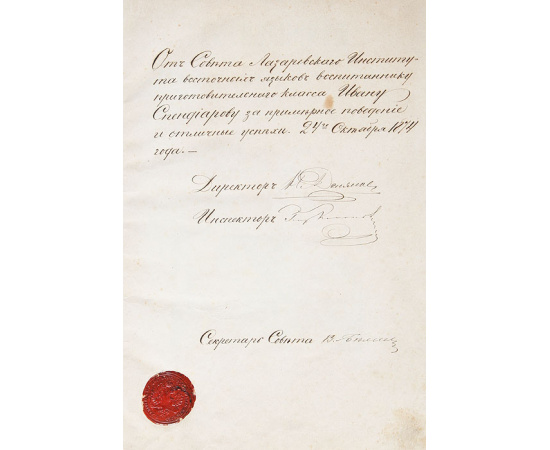 Отъ Совѣта Лазаревскаго Институ-
та восточныхъ языковъ воспитаннику
приготовительнаго класса Ивану
Спендіарову за примѣрное поведеніе
и отличные успѣхи. 24го Октября 1874
года.—
Директоръ
Инспекторъ
Секретарь Совѣта